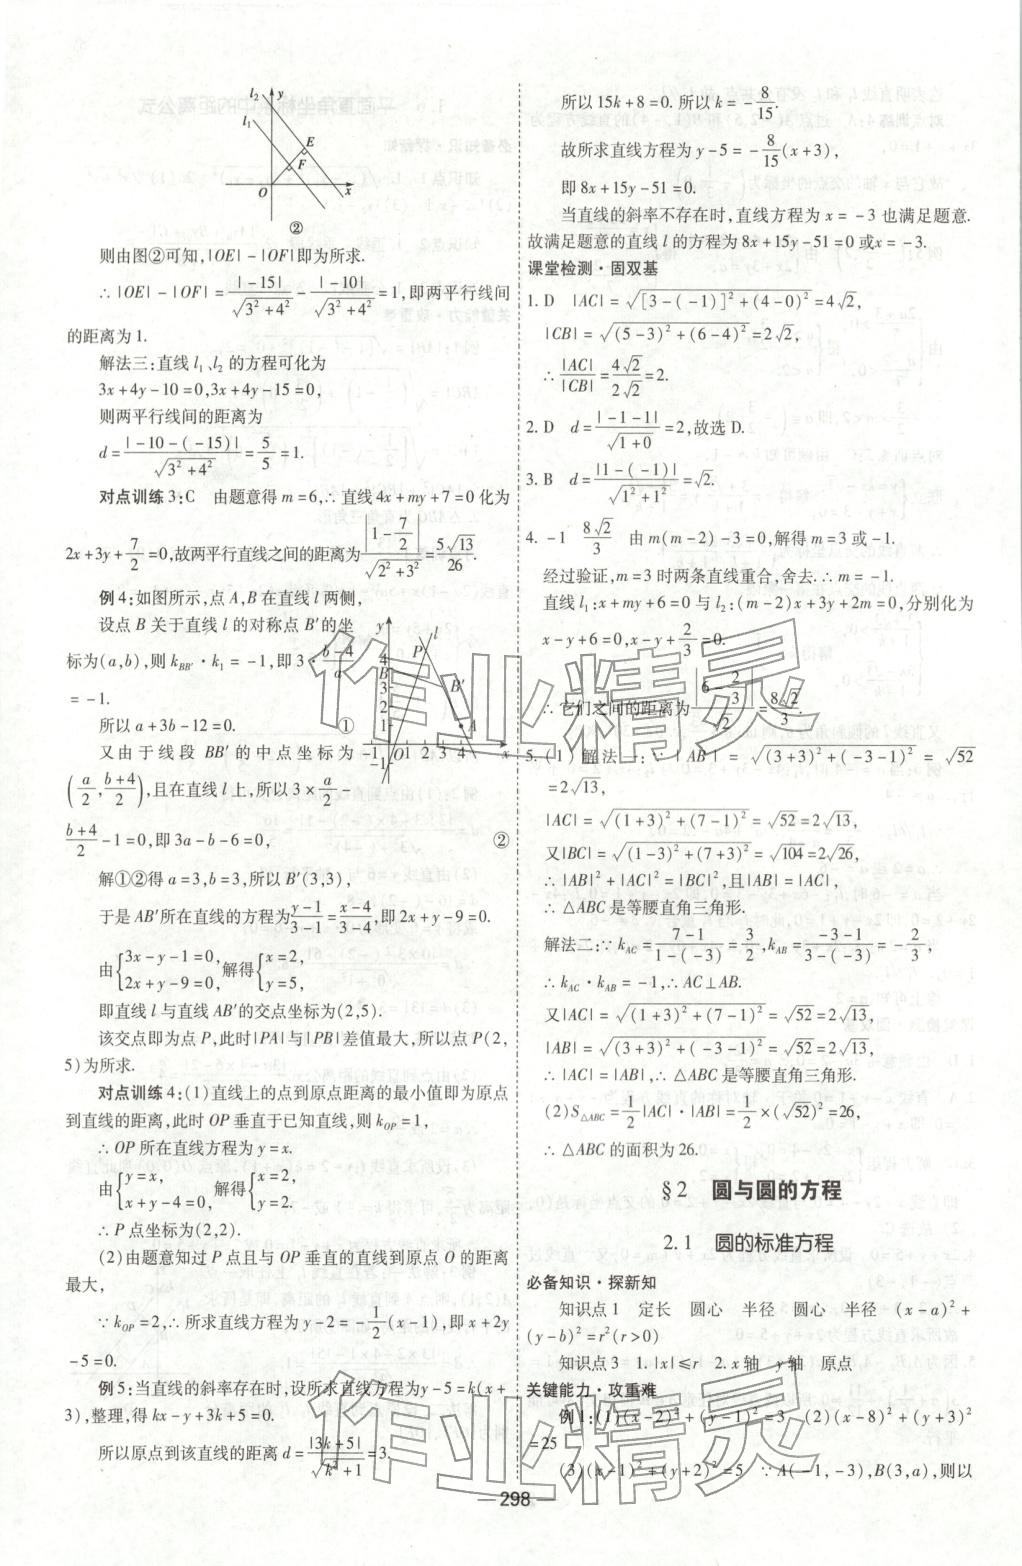 l₂
y
l₁
E
F
O
x
②
则由图②可知,|OE|－|OF|即为所求.
∴|OE|－|OF|＝|－15|/√(3²＋4²)－|－10|/√(3²＋4²)＝1,即两平行线间
的距离为1.
解法三:直线 l₁、l₂ 的方程可化为
3x＋4y－10＝0,3x＋4y－15＝0,
则两平行线间的距离为
d＝|－10－(－15)|/√(3²＋4²)＝5/5＝1.
对点训练3:C　由题意得 m＝6,∴直线4x＋my＋7＝0化为
2x＋3y＋7/2＝0,故两平行直线之间的距离为|1－7/2|/√(2²＋3²)＝5√13/26.
例4:如图所示,点A,B在直线l两侧,
设点B关于直线l的对称点B′的坐
标为(a,b),则k_BB′·k₁＝－1,即3·(b－4)/a
＝－1.
所以a＋3b－12＝0.　①
又由于线段BB′的中点坐标为
(a/2,(b＋4)/2),且在直线l上,所以3×a/2－
(b＋4)/2－1＝0,即3a－b－6＝0,　②
y
l
P
4
B
B′
3
2
1
A
－1 O 1 2 3 4 x
－1
解①②得a＝3,b＝3,所以B′(3,3),
于是AB′所在直线的方程为(y－1)/(3－1)＝(x－4)/(3－4),即2x＋y－9＝0.
由{3x－y－1＝0, 2x＋y－9＝0,解得{x＝2, y＝5,
即直线l与直线AB′的交点坐标为(2,5).
该交点即为点P,此时|PA|与|PB|差值最大,所以点P(2,
5)为所求.
对点训练4:(1)直线上的点到原点距离的最小值即为原点
到直线的距离,此时OP垂直于已知直线,则k_OP＝1,
∴OP所在直线方程为y＝x.
由{y＝x, x＋y－4＝0,解得{x＝2, y＝2.
∴P点坐标为(2,2).
(2)由题意知过P点且与OP垂直的直线到原点O的距离
最大,
∵k_OP＝2,∴所求直线方程为y－2＝－1/2(x－1),即x＋2y
－5＝0.
例5:当直线的斜率存在时,设所求直线方程为y－5＝k(x＋
3),整理,得kx－y＋3k＋5＝0.
所以原点到该直线的距离d＝|3k＋5|/√(k²＋1)＝3.
所以15k＋8＝0.所以k＝－8/15.
故所求直线方程为y－5＝－8/15(x＋3),
即8x＋15y－51＝0.
当直线的斜率不存在时,直线方程为x＝－3也满足题意.
故满足题意的直线l的方程为8x＋15y－51＝0或x＝－3.
课堂检测·固双基
1. D　|AC|＝√([3－(－1)]²＋(4－0)²)＝4√2,
|CB|＝√((5－3)²＋(6－4)²)＝2√2,
∴|AC|/|CB|＝4√2/2√2＝2.
2. D　d＝|－1－1|/√(1＋0)＝2,故选D.
3. B　d＝|1－(－1)|/√(1²＋1²)＝√2.
4. －1　8√2/3　由m(m－2)－3＝0,解得m＝3或－1.
经过验证,m＝3时两条直线重合,舍去.∴m＝－1.
直线l₁:x＋my＋6＝0与l₂:(m－2)x＋3y＋2m＝0,分别化为
x－y＋6＝0,x－y＋2/3＝0.
∴它们之间的距离为|6－2/3|/√2＝8√2/3.
5. (1)解法一:∵|AB|＝√((3＋3)²＋(－3－1)²)＝√52
＝2√13,
|AC|＝√((1＋3)²＋(7－1)²)＝√52＝2√13,
又|BC|＝√((1－3)²＋(7＋3)²)＝√104＝2√26,
∴|AB|²＋|AC|²＝|BC|²,且|AB|＝|AC|,
∴△ABC是等腰直角三角形.
解法二:∵k_AC＝(7－1)/(1－(－3))＝3/2,k_AB＝(－3－1)/(3－(－3))＝－2/3,
∴k_AC·k_AB＝－1,∴AC⊥AB.
又|AC|＝√((1＋3)²＋(7－1)²)＝√52＝2√13,
|AB|＝√((3＋3)²＋(－3－1)²)＝√52＝2√13,
∴|AC|＝|AB|,∴△ABC是等腰直角三角形.
(2)S△ABC＝1/2|AC|·|AB|＝1/2×(√52)²＝26,
∴△ABC的面积为26.
§2　圆与圆的方程
2.1　圆的标准方程
必备知识·探新知
知识点1　定长　圆心　半径　圆心　半径　(x－a)²＋
(y－b)²＝r²(r＞0)
知识点3　1.|x|≤r　2.x轴　y轴　原点
关键能力·攻重难
例1:(1)(x－2)²＋(y－1)²＝3　(2)(x－8)²＋(y＋3)²
＝25
(3)(x－1)²＋(y＋2)²＝5　∵A(－1,－3),B(3,a),则以
298
作业精灵
作业精灵